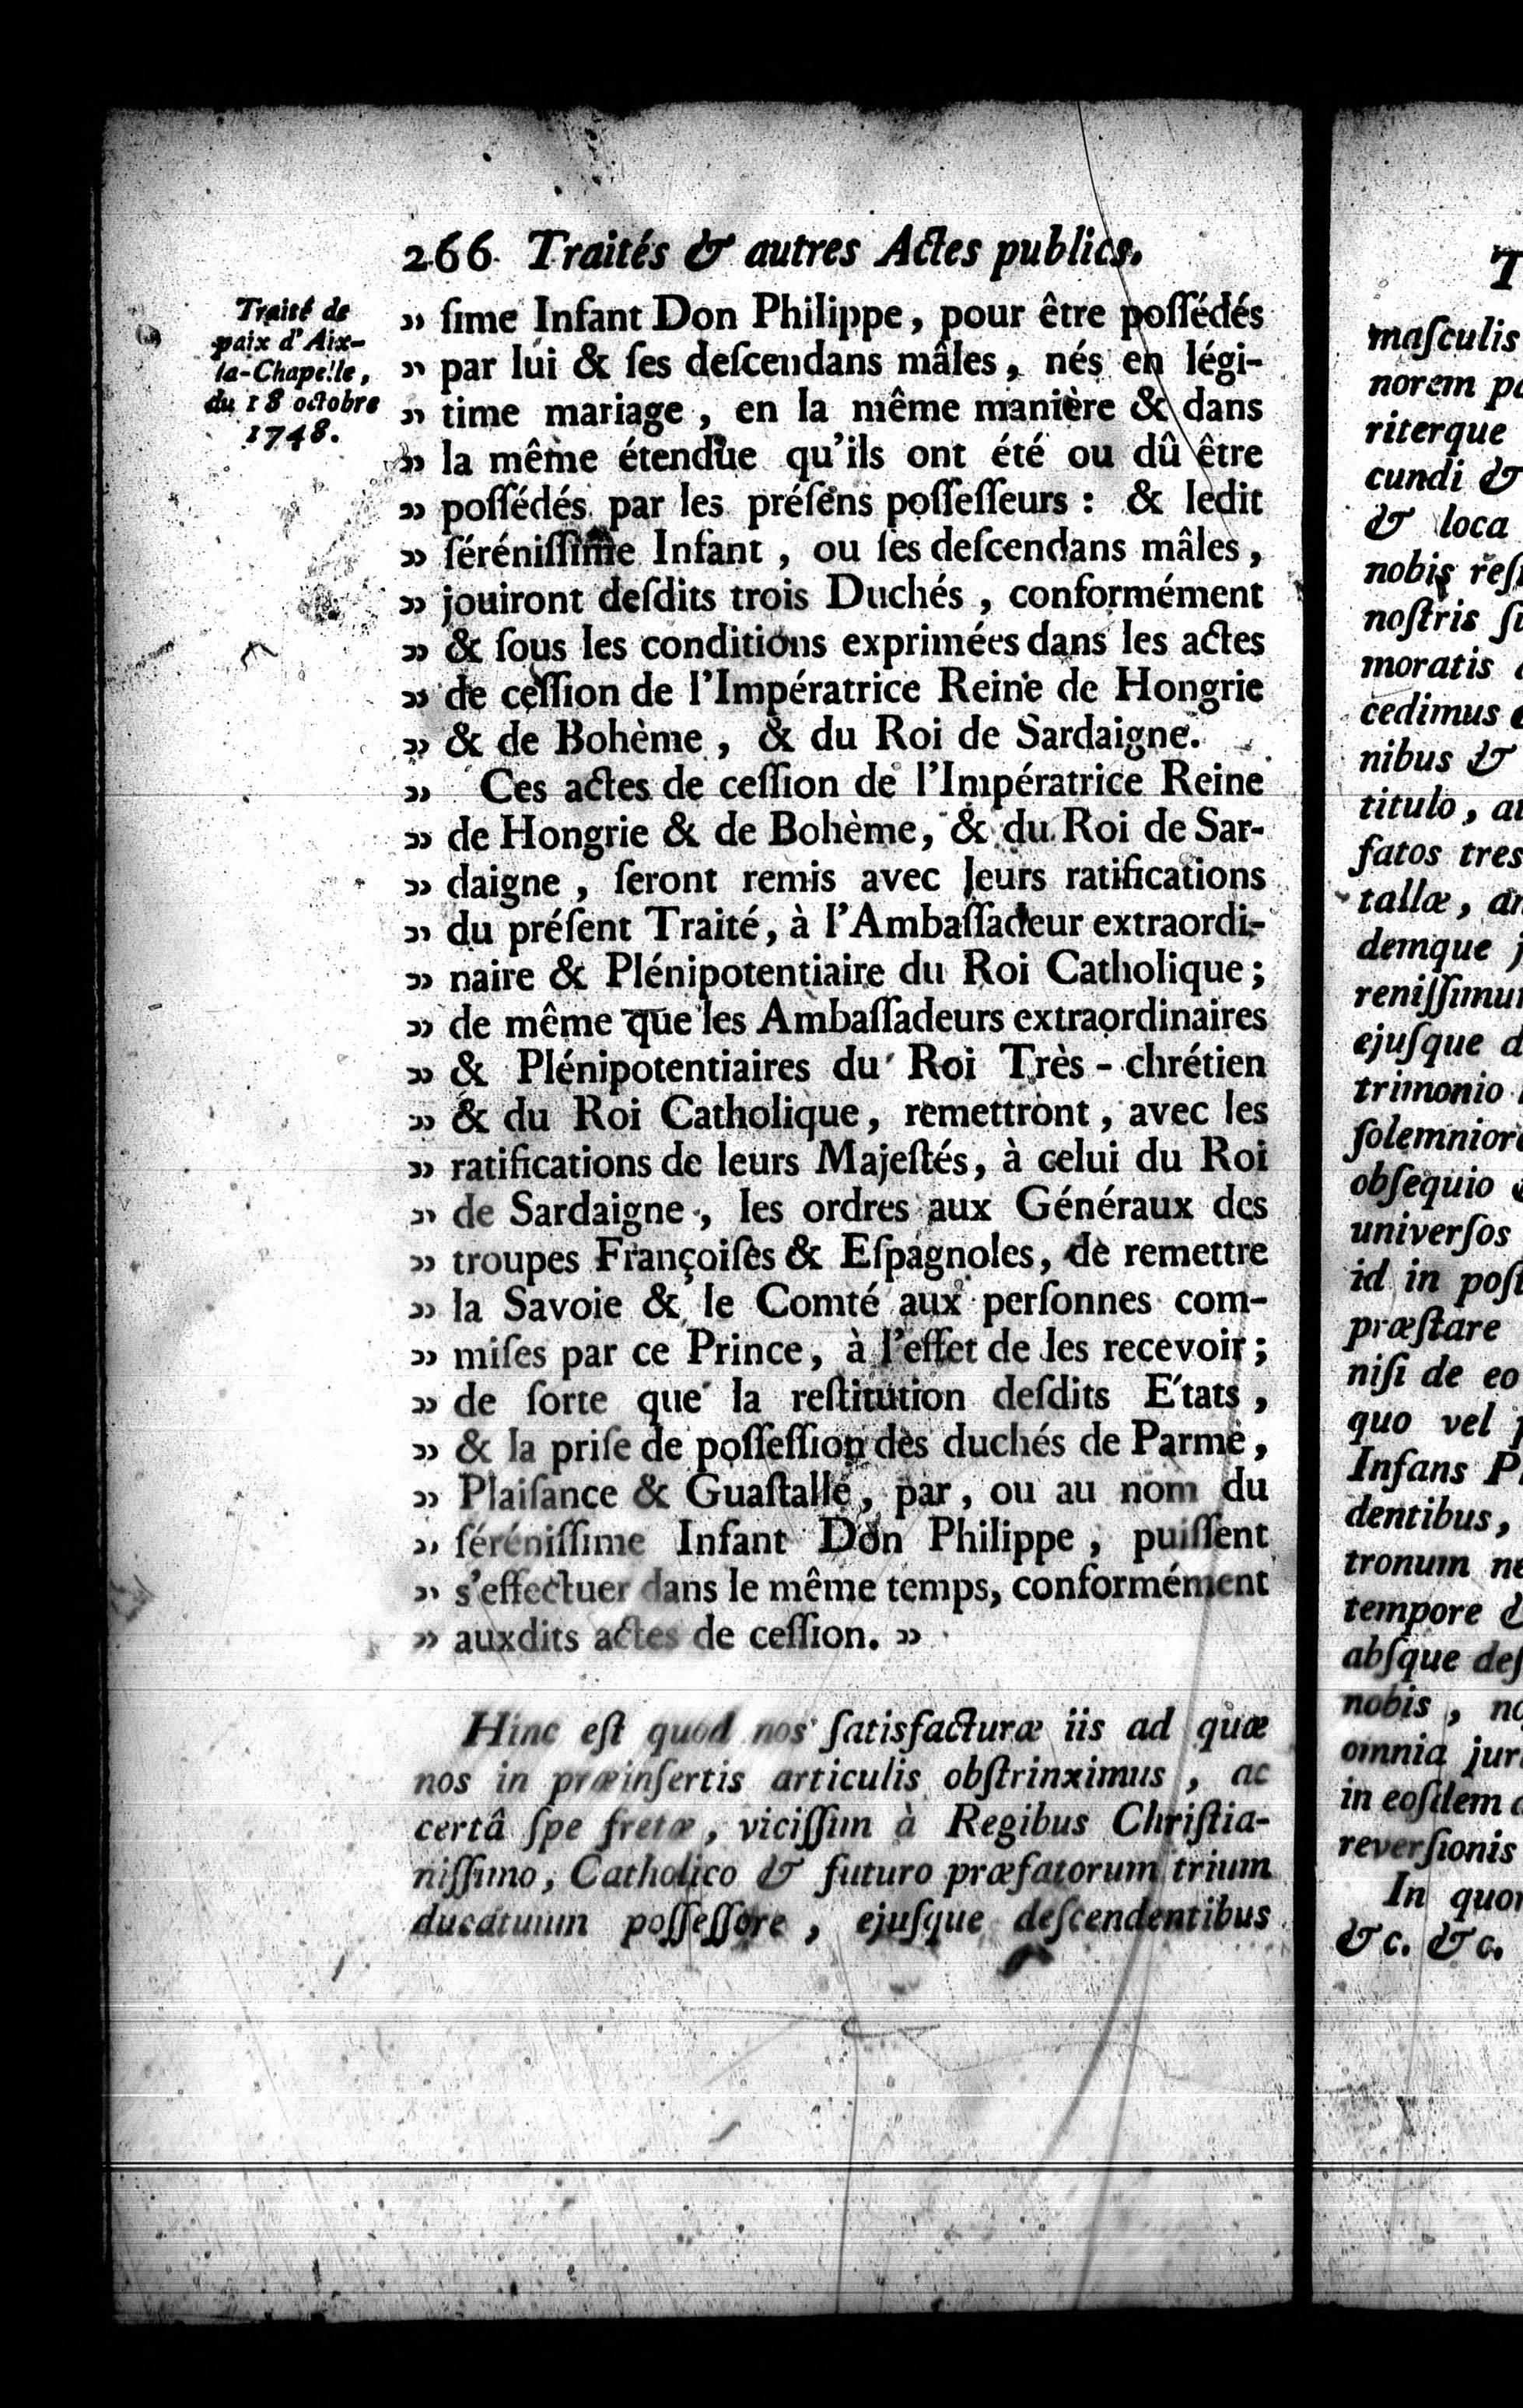 266 Traités & autres Actes publics.
Traité de
paix d'Aix-
la-Chapelle,
du 18 octobre
1748.
» ſime Infant Don Philippe, pour être poſſédés
» par lui & ſes deſcendans mâles, nés en légi-
» time mariage, en la même manière & dans
» la même étendue qu'ils ont été ou dû être
» poſſédés par les préſens poſſeſſeurs : & ledit
» ſéréniſſime Infant, ou ſes deſcendans mâles,
» jouiront deſdits trois Duchés, conformément
» & ſous les conditions exprimées dans les actes
» de ceſſion de l'Impératrice Reine de Hongrie
» & de Bohème, & du Roi de Sardaigne.
» Ces actes de ceſſion de l'Impératrice Reine
» de Hongrie & de Bohème, & du Roi de Sar-
» daigne, ſeront remis avec leurs ratifications
» du préſent Traité, à l'Ambaſſadeur extraordi-
» naire & Plénipotentiaire du Roi Catholique;
» de même que les Ambaſſadeurs extraordinaires
» & Plénipotentiaires du Roi Très-chrétien
» & du Roi Catholique, remettront, avec les
» ratifications de leurs Majeſtés, à celui du Roi
» de Sardaigne, les ordres aux Généraux des
» troupes Françoiſes & Eſpagnoles, de remettre
» la Savoie & le Comté aux perſonnes com-
» miſes par ce Prince, à l'effet de les recevoir;
» de ſorte que la reſtitution deſdits E'tats,
» & la priſe de poſſeſſion des duchés de Parme,
» Plaiſance & Guaſtalle, par, ou au nom du
» ſéréniſſime Infant Don Philippe, puiſſent
» s'effectuer dans le même temps, conformément
» auxdits actes de ceſſion. »
Hinc eſt quod nos ſatisfacturæ iis ad quæ
nos in præinſertis articulis obſtrinximus, ac
certâ ſpe fretæ, viciſſim à Regibus Chriſtia-
niſſimo, Catholico & futuro præfatorum trium
ducatuum poſſeſſore, ejuſque deſcendentibus
T
maſculis
norem
riterque
cundi &
& loca
nobis
noſtris
moratis
cedimus
nibus &
titulo,
fatos tres
tallæ,
demque
reniſſimum
ejuſque
trimonio
ſolemniore
obſequio
univerſos
id in
præſtare
niſi de eo
quo vel
Infans
dentibus,
tronum
tempore &
abſque
nobis,
omnia
in eoſdem
reverſionis
In
&c. &c.